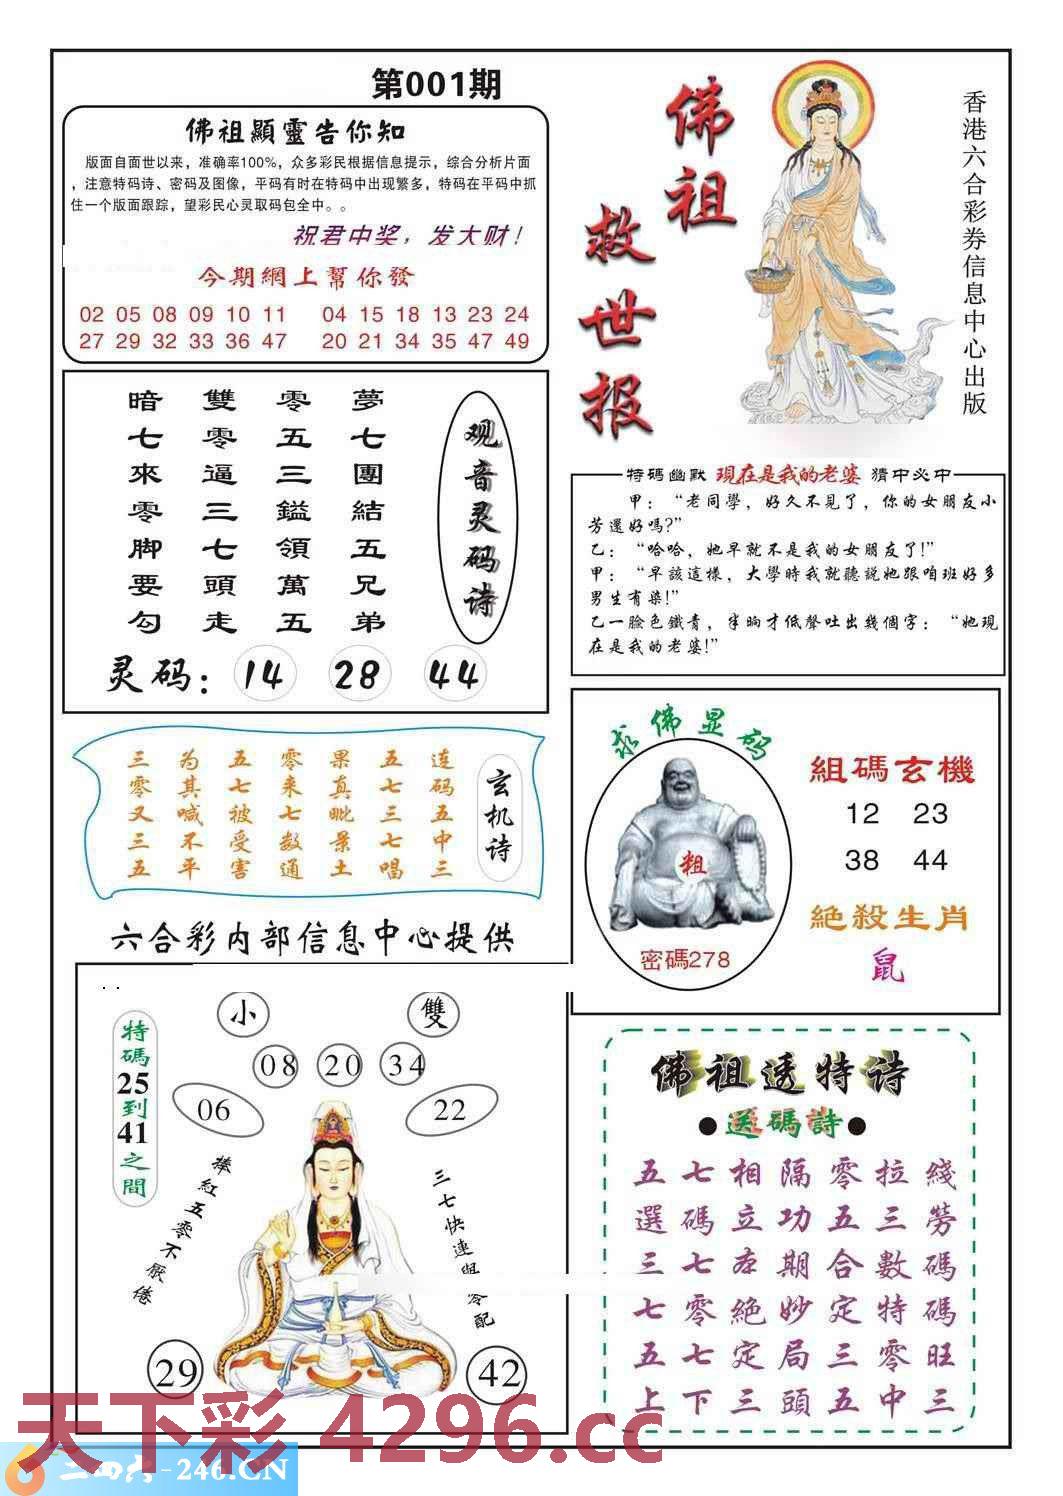 第001期
佛祖顯靈告你知
版面自面世以来，准确率100%，众多彩民根据信息提示，综合分析片面
，注意特码诗、密码及图像，平码有时在特码中出现繁多，特码在平码中抓
住一个版面跟踪，望彩民心灵取码包全中。。
祝君中奖，发大财！
今期網上幫你發
02 05 08 09 10 11 04 15 18 13 23 24
27 29 32 33 36 47 20 21 34 35 47 49
佛祖
救世报
香港六合彩券信息中心出版
观音灵码诗
夢七團結五兄弟
零五三鎰領萬五
雙零逼三七頭走
暗七來零脚要勾
灵码：14 28 44
特碼幽默 現在是我的老婆 猜中必中
甲：“老同學，好久不見了，你的女朋友小
芳還好嗎?”
乙：“哈哈，她早就不是我的女朋友了!”
甲：“早該這樣，大學時我就聽説她跟咱班好多
男生有染!”
乙一臉色鐵青，半晌才低聲吐出幾個字：“她現
在是我的老婆!”
玄机诗
连码五中三
五七三七唱
果真毗景土
零来七数通
五七被受害
为其喊不平
三零又三五
求佛显码
粗
密碼278
組碼玄機
12 23
38 44
絶殺生肖
鼠
六合彩内部信息中心提供
小 雙
08 20 34
06 22
特碼25到41之間
捧紅五零不厭倦
三七快連與零配
29 42
佛祖透特诗
●送碼詩●
五七相隔零拉綫
選碼立功五三勞
三七本期合數碼
七零絶妙定特碼
五七定局三零旺
上下三頭五中三
天下彩 4296.cc
二四六-246.CN